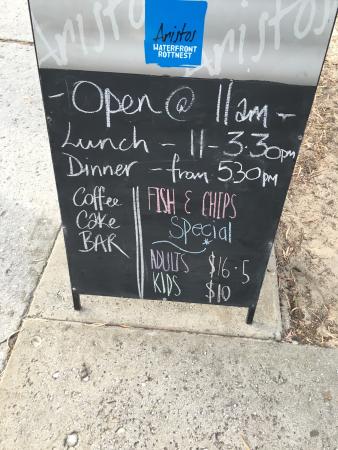 Aristos
Aristos
Aristos
WATERFRONT
ROTTNEST
- Open @ 11am -
Lunch - 11 - 3.30pm
Dinner - from 530pm
Coffee
Cake
BAR
FISH & CHIPS
Special
ADULTS $16.5
KIDS $10